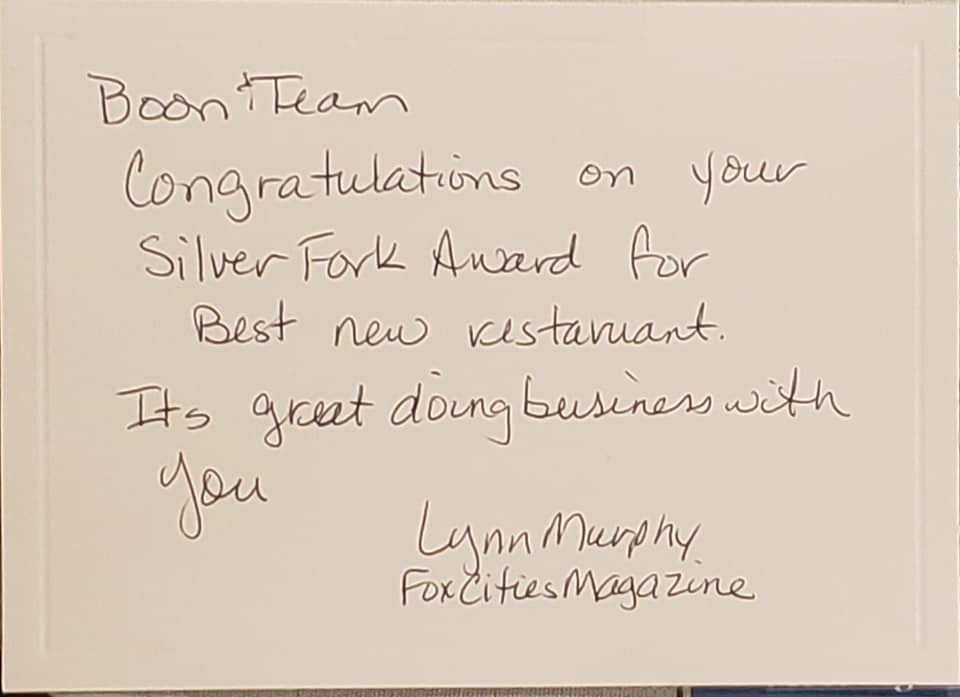 Boon & Team
Congratulations on your
Silver Fork Award for
Best new restaruant.
Its great doing business with
you
Lynn Murphy
Fox Cities Magazine